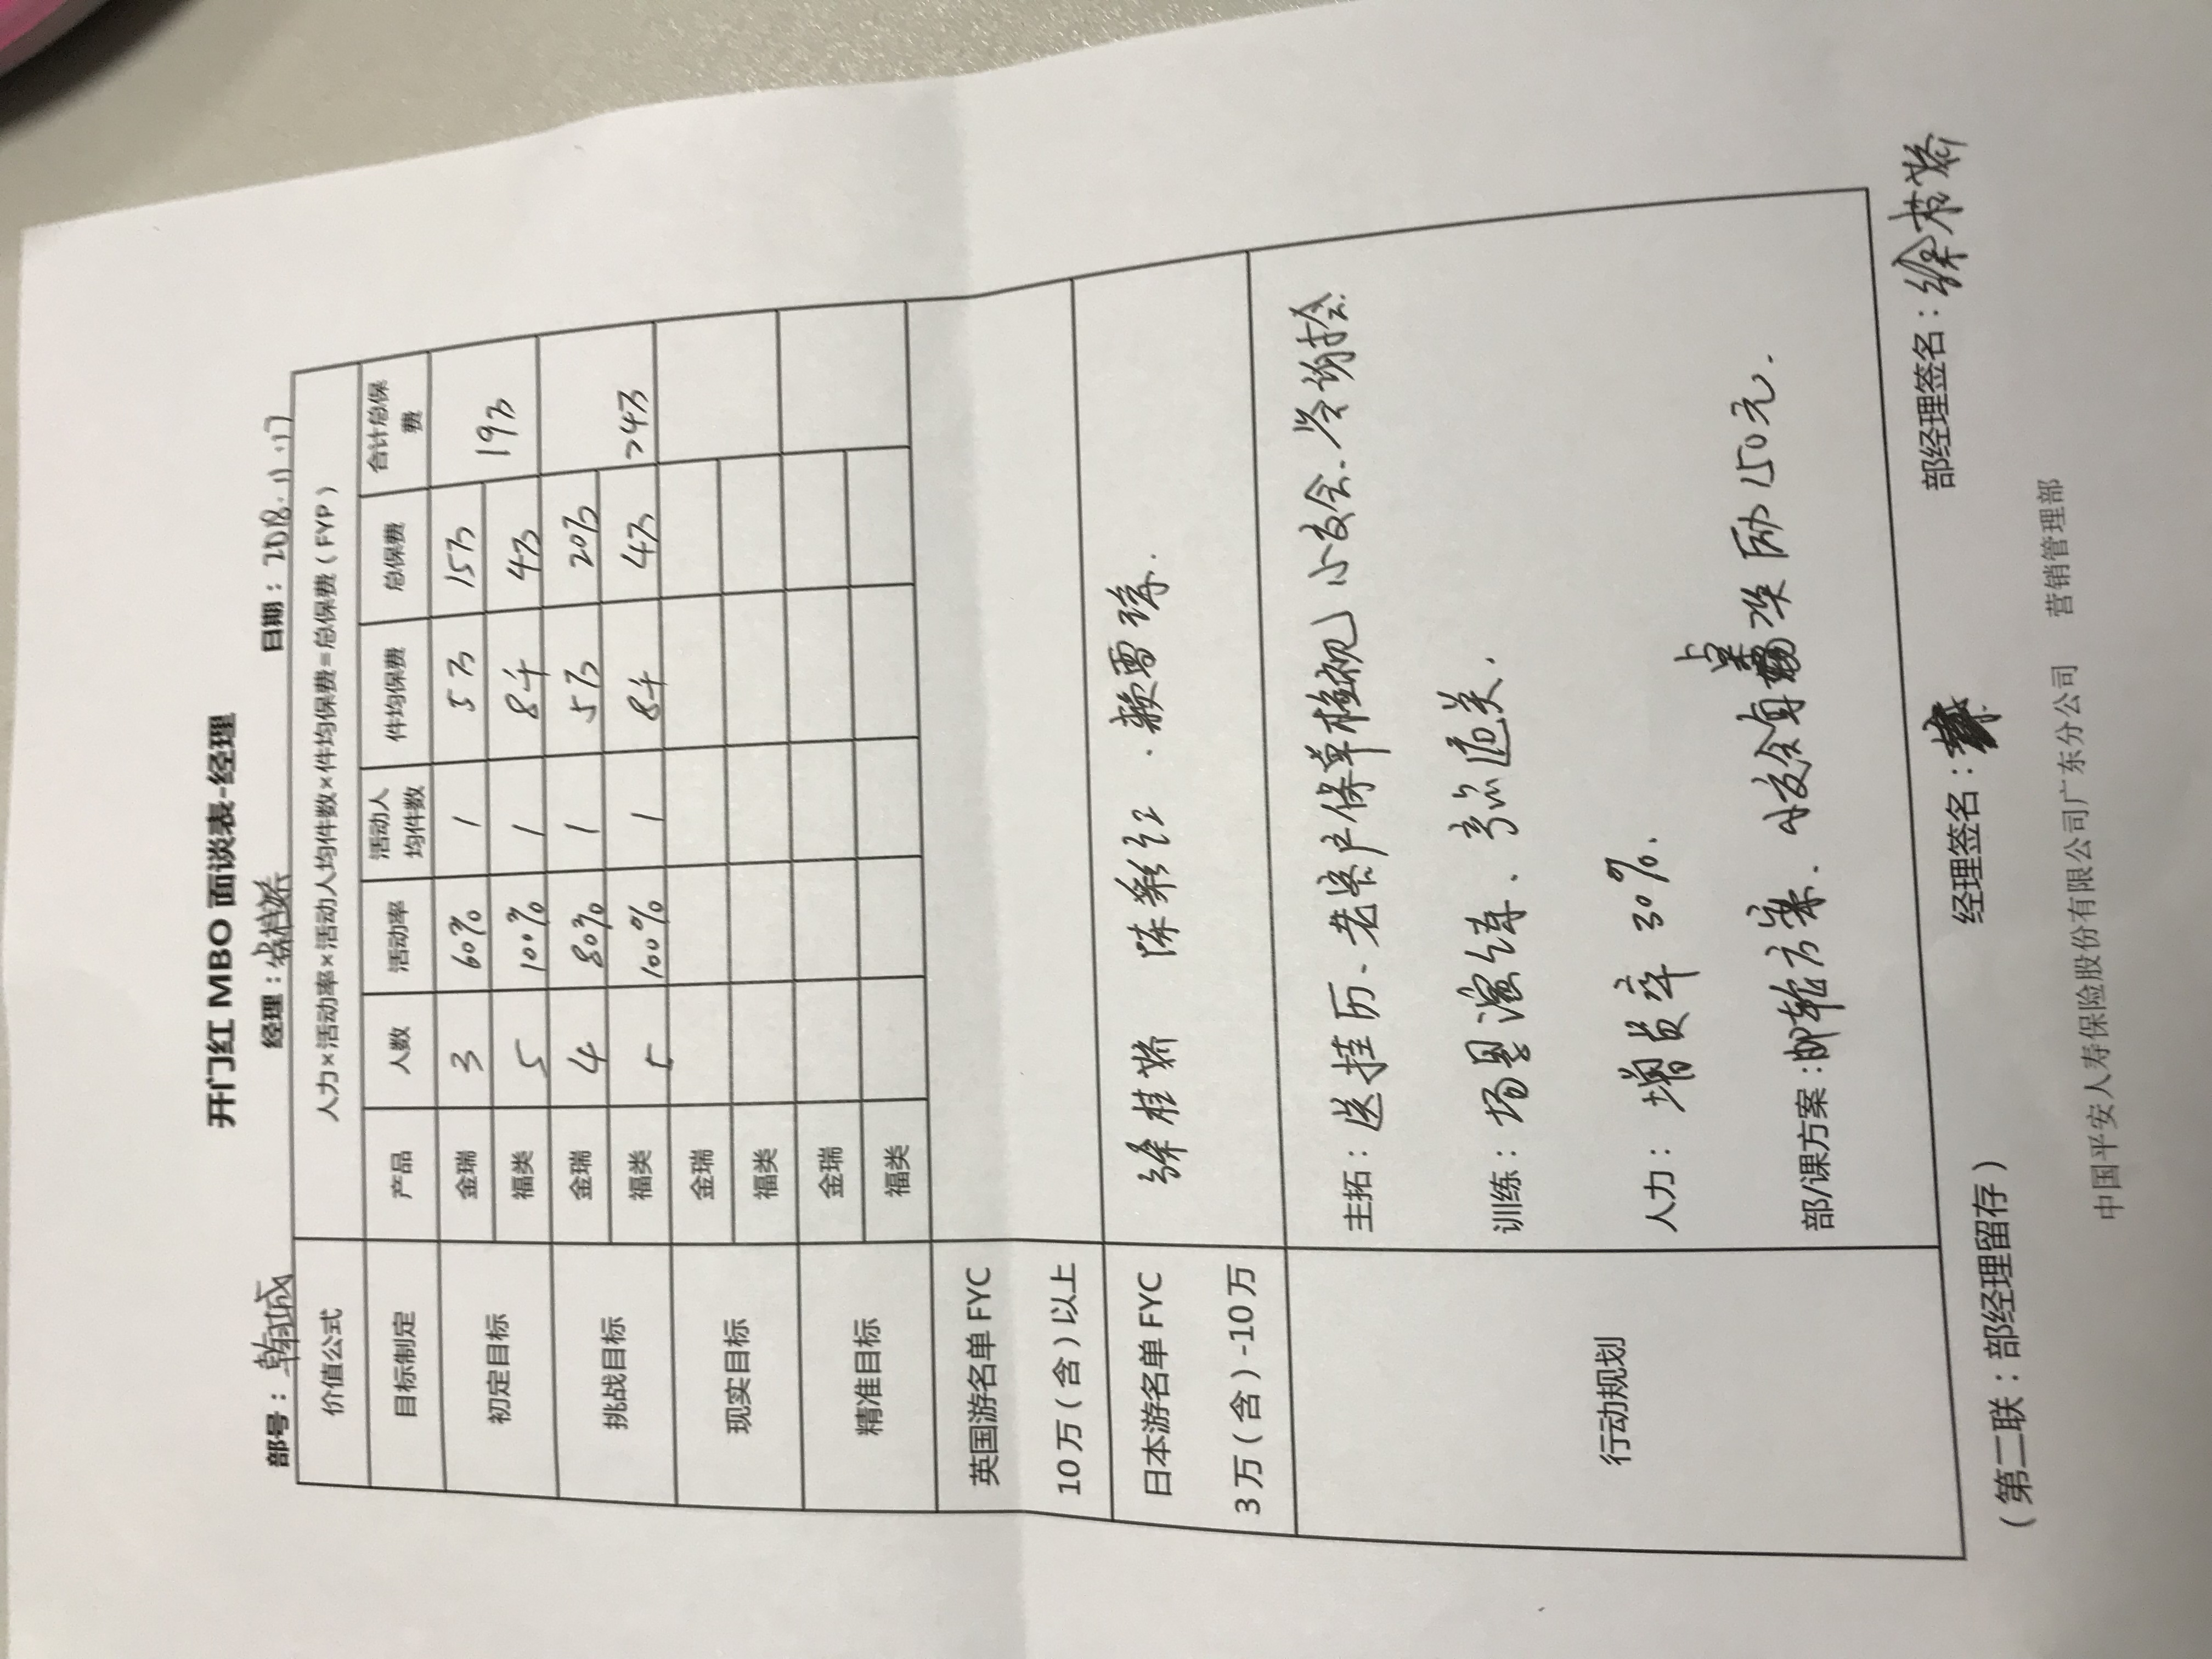 开门红 MBO 面谈表-经理
部号：翰城 经理：徐桂娇 日期：2018.11.17
价值公式 人力×活动率×活动人均件数×件均保费=总保费（FYP）
目标制定 产品 人数 活动率 活动人均件数 件均保费 总保费 合计总保费
初定目标 金瑞 3 60% 1 5万 15万 19万
福类 5 100% 1 8千 4万
挑战目标 金瑞 4 80% 1 5万 20万
福类 5 100% 1 8千 4万 24万
现实目标 金瑞
福类
精准目标 金瑞
福类
英国游名单 FYC
10万（含）以上
日本游名单 FYC
3万（含）-10万
徐桂娇 陈彩红 . 赖雪
行动规划
主拓：送挂历、老客户保单检视、小交会、答谢会.
训练：场景演练、通关.
人力：增员率 30%.
部/课方案：方案. 小交会每 上 奖励150元.
经理签名： 部经理签名：徐桂娇
（第二联：部经理留存）
中国平安人寿保险股份有限公司广东分公司 营销管理部